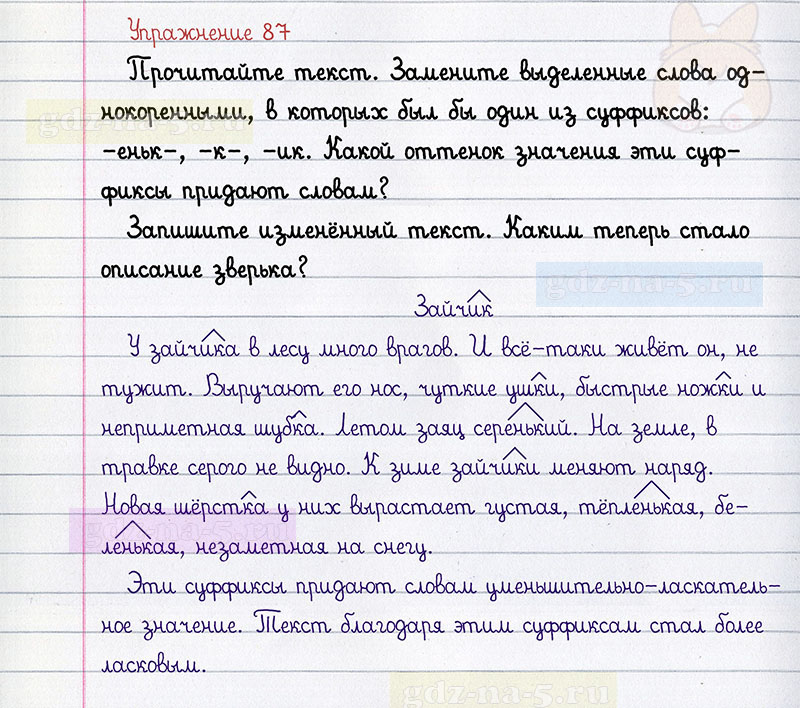 Упражнение 87
Прочитайте текст. Замените выделенные слова од-
нокоренными, в которых был бы один из суффиксов:
-еньк-, -к-, -ик. Какой оттенок значения эти суф-
фиксы придают словам?
Запишите изменённый текст. Каким теперь стало
описание зверька?
gdz-na-5.ru
gdz-na-5.ru
Зайчик
У зайчика в лесу много врагов. И всё-таки живёт он, не
тужит. Выручают его нос, чуткие ушки, быстрые ножки и
неприметная шубка. Летом заяц серенький. На земле, в
травке серого не видно. К зиме зайчики меняют наряд.
Новая шёрстка у них вырастает густая, тёпленькая, бе-
gdz-na-5.ru
ленькая, незаметная на снегу.
Эти суффиксы придают словам уменьшительно-ласкатель-
ное значение. Текст благодаря этим суффиксам стал более
ласковым.
gdz-na-5.ru